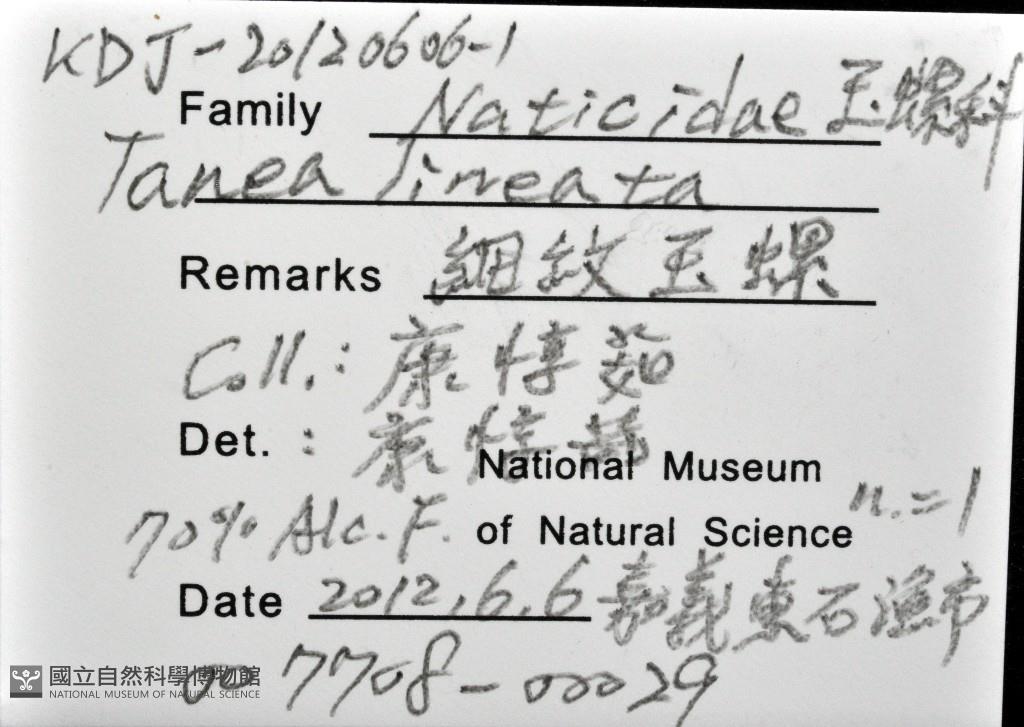 KDJ-20120606-1
Family Naticidae 玉螺科
Tanea lineata
Remarks 細紋玉螺
Coll.: 康惇茹
Det.: 康惇茹
National Museum
70% Alc. F. of Natural Science n.=1
Date 2012.6.6 嘉義東石漁市
007708-00029
國立自然科學博物館
NATIONAL MUSEUM OF NATURAL SCIENCE